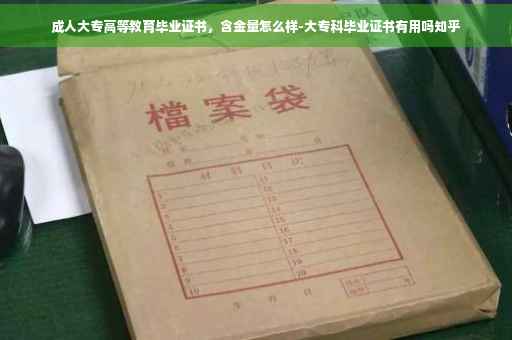 成人大专高等教育毕业证书，含金量怎么样-大专科毕业证书有用吗知乎
檔案袋
材料目次
1 11
2 12
3 13
4 14
5 15
6 16
7 17
8 18
9 19
10 20
年 月 日